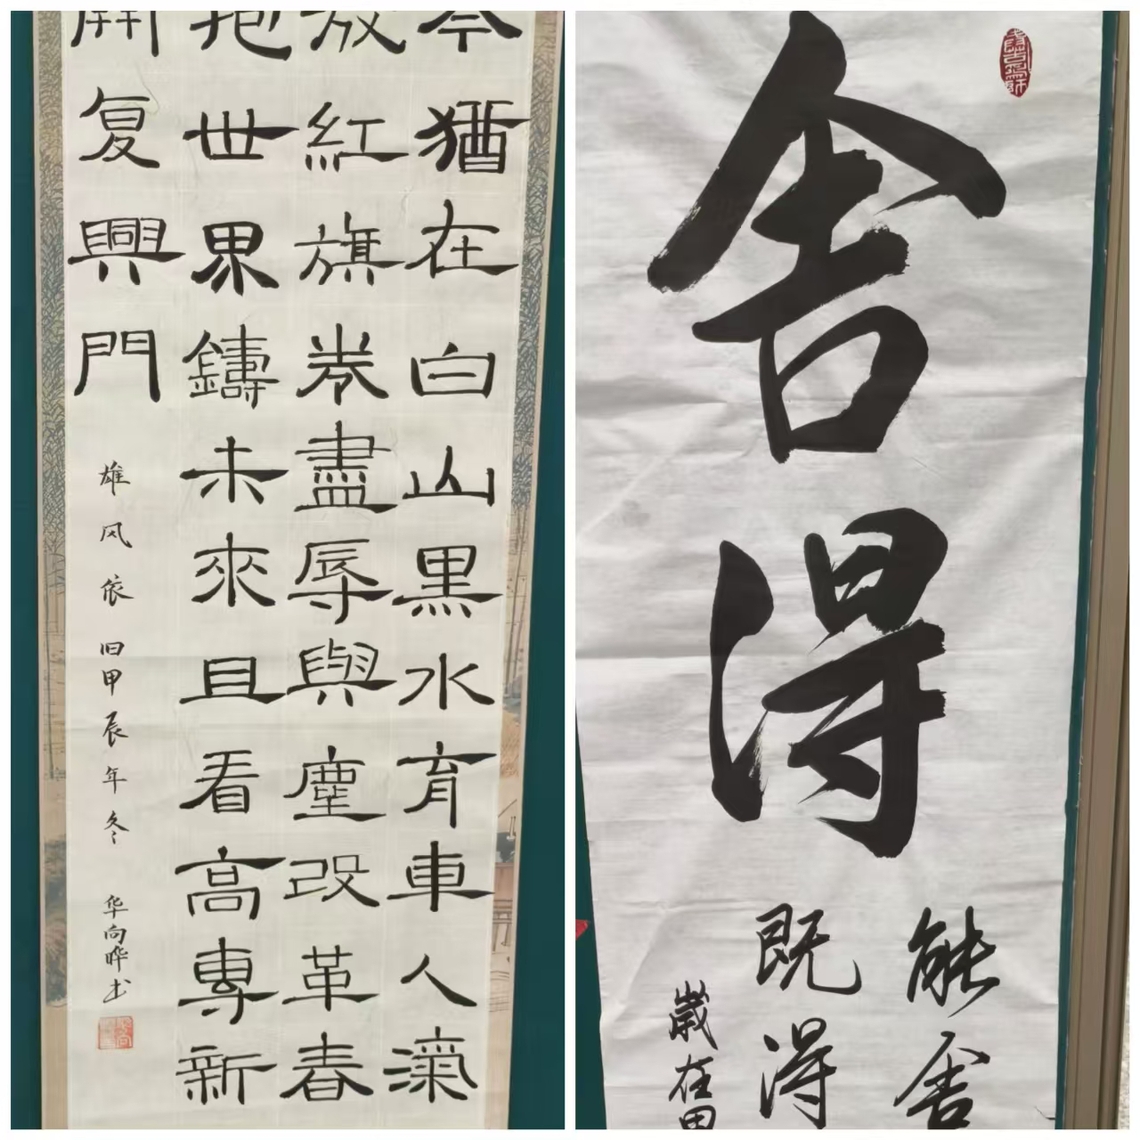 今猶在白山黑水育車人
放紅旗卷盡辱與塵改革春
世界鑄未來且看高專新
開复興門
雄风依旧甲辰年冬 华向晔书
舍得
能舍
既得
歲在甲